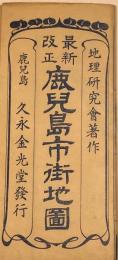 地理研究會著作
最新改正
鹿兒島市街地圖
鹿兒島 久永金光堂發行